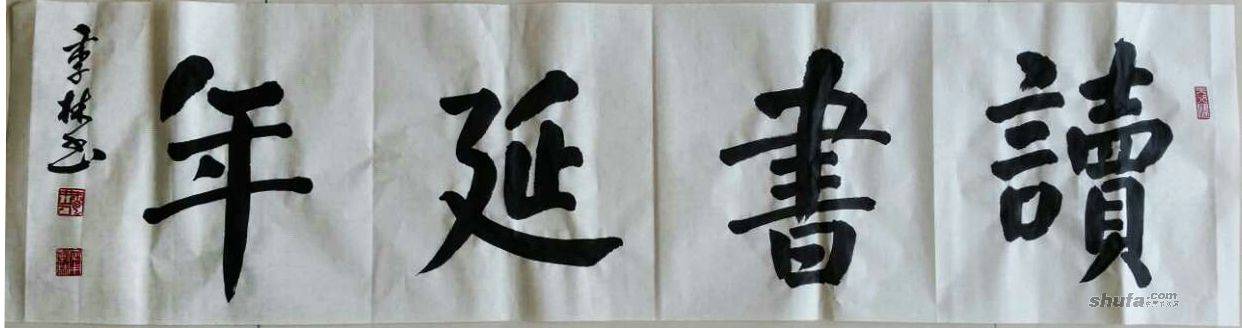 讀書延年
季林书
shufa.com